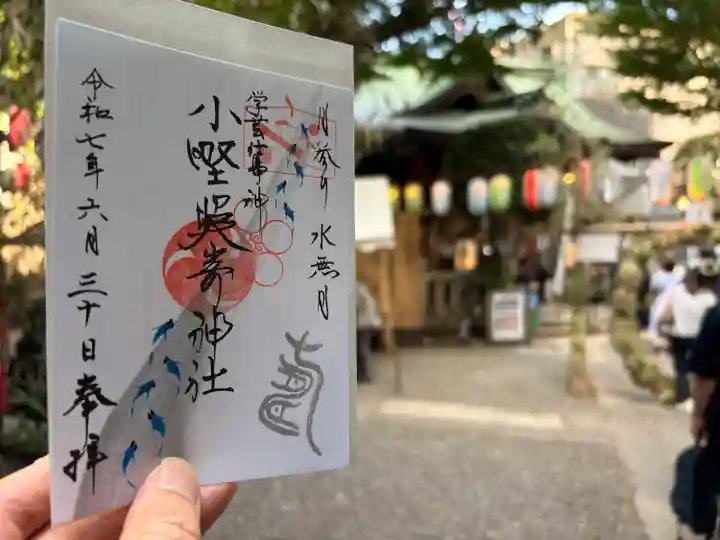 月参り 水無月
学芸の神
小野照崎神社
令和七年六月三十日奉拝